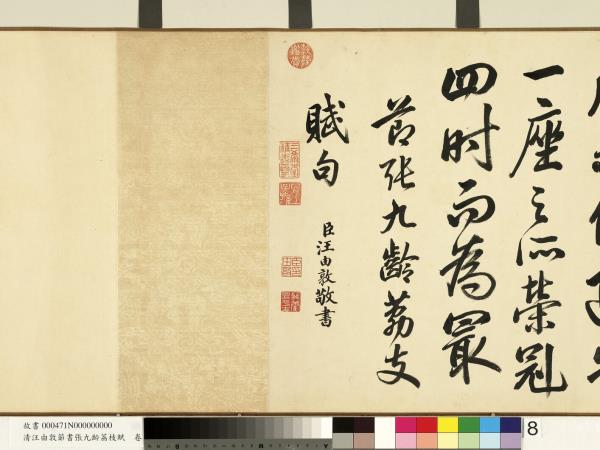 一座之所榮冠
四时而為最
節張九齡荔支
賦句
臣汪由敦敬書
故書 000471N000000000
清汪由敦節書張九齡荔枝賦 卷
8